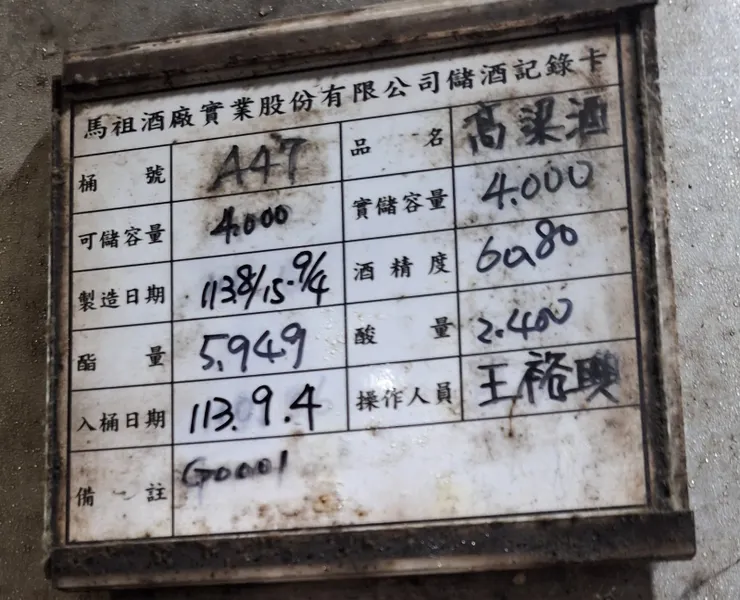 馬祖酒廠實業股份有限公司儲酒記錄卡
桶號 A47 品名 高粱酒
可儲容量 4.000 實儲容量 4.000
製造日期 113.8/15-9/4 酒精度 60.80
酯量 5.949 酸量 2.400
入桶日期 113.9.4 操作人員 王裕興
備註 G0001